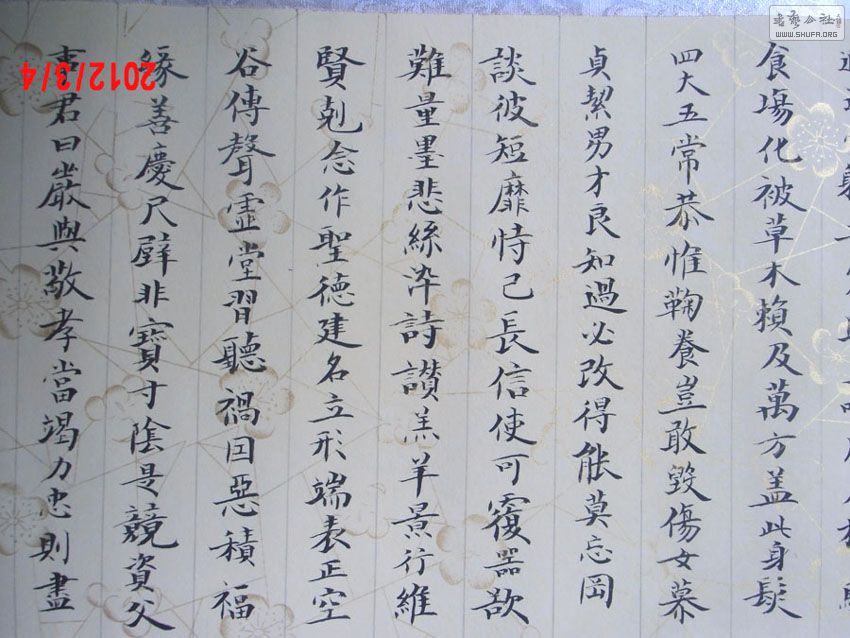 食場化被草木賴及萬方盖此身髮
四大五常恭惟鞠養豈敢毀傷女慕
貞絜男才良知過必改得能莫忘罔
談彼短靡恃己長信使可覆器欲
難量墨悲絲染詩讚羔羊景行維
賢剋念作聖德建名立形端表正空
谷傳聲虛堂習聽禍因惡積福
緣善慶尺璧非寶寸陰是競資父
事君曰嚴與敬孝當竭力忠則盡
2012/3/4
書藝公社
WWW.SHUFA.ORG